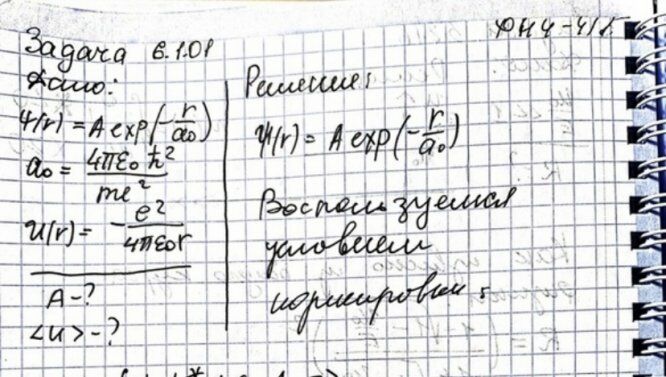 Задача 6.1.01
Дано:
Ψ(r) = A exp(-r/a₀)
a₀ = 4πε₀ħ²/me²
U(r) = -e²/4πε₀r
A-?
<U>-?
Решение:
Ψ(r) = A exp(-r/a₀)
Воспользуемся
условием
нормировки: